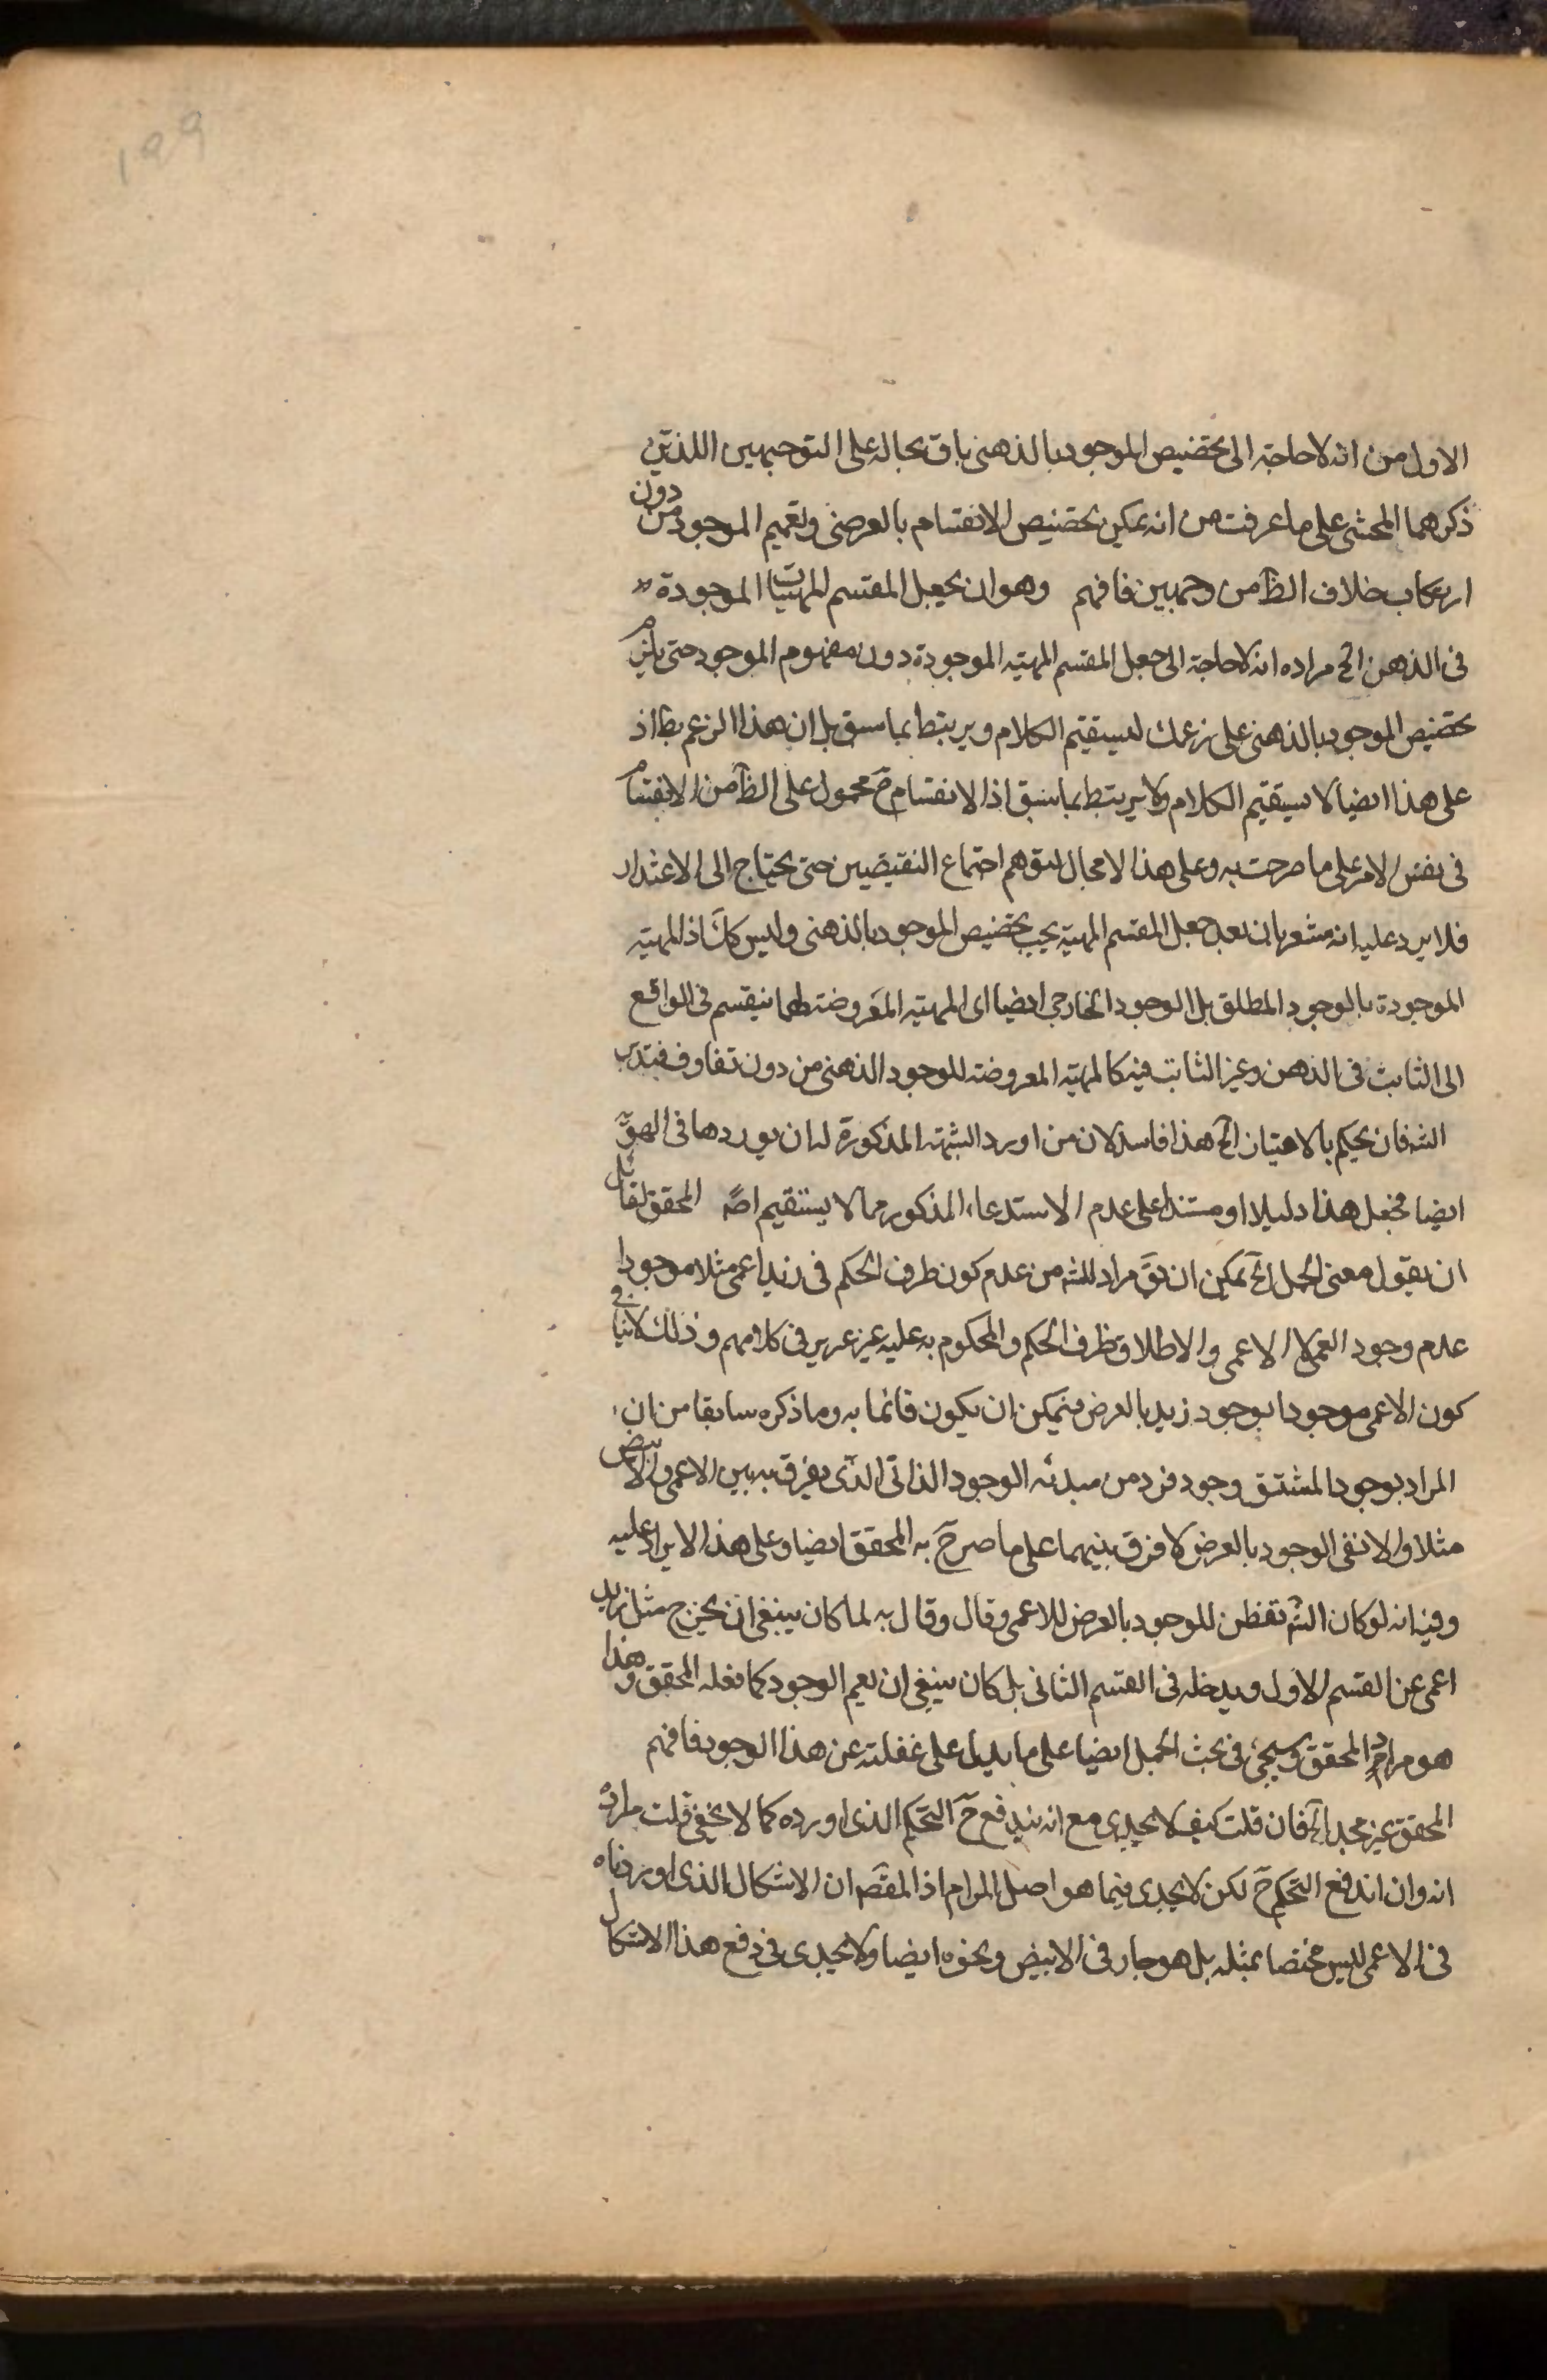 199
الاول من انه لا حاجة الى تخصيص الموجود بالذهنى باق بحاله على التوجيهين اللذين
ذكرهما المحشى على ما عرفت من انه يمكن تخصيص الانقسام بالعرضى وتعميم الموجود من دون
ارتكاب خلاف الظ من وجهين فافهم وهو ان يجعل المقسم المهيات الموجودة
فى الذهن الخ مراده انه لا حاجة الى جعل المقسم المهية الموجودة دون مفهوم الموجود حتى يلزم
تخصيص الموجود بالذهنى على زعمك ليستقيم الكلام ويرتبط بما سبق بل ان هذا الزعم بط اذ
على هذا ايضا لا يستقيم الكلام ولا يرتبط بما سبق اذ الانقسام ح محمول على الظ من الانقسام
فى نفس الامر على ما صرحت به وعلى هذا لا مجال لتوهم اجتماع النقيضين حتى يحتاج الى الاعتذار
فلا يرد عليه انه مشعر بان بعد جعل المقسم المهية يجب تخصيص الموجود بالذهنى وليس كك اذ المهية
الموجودة بالوجود المطلق بل الوجود الخارجى ايضا اى المهية المعروضة لهما ينقسم فى الواقع
الى الثابت فى الذهن وغير الثابت فيه كالمهية المعروضة للوجود الذهنى من دون تفاوت فتدبر
الشه فان يحكم بالامتياز الخ هذا فاسد لان من اورد الشبهة المذكورة له ان يوردها فى الهوية
ايضا فجعل هذا دليلا او مستندا على عدم الاستدعاء المذكور مما لا يستقيم اصلا المحقق لقائل
ان يقول معنى الحمل الخ يمكن ان يق مراد الشه من عدم كون طرف الحكم فى زيد اعمى مثلا موجودا
عدم وجود العمى لا الاعمى والاطلاق طرف الحكم والمحكوم به عليه غير عزيز فى كلامهم وذلك لا ينافى
كون الاعمى موجودا بوجود زيد بالعرض فيمكن ان يكون قائما به وما ذكره سابقا من ان
المراد بوجود المشتق وجود فرد من مبدئه الوجود الذاتى الذى يفرق به بين الاعمى والابيض
مثلا والا نفى الوجود بالعرض لا فرق بينهما على ما صرح به المحقق ايضا وعلى هذا لا يراد عليه
وفيه انه لو كان الشه تفطن للموجود بالعرض للاعمى وقال وقال به لما كان ينبغى ان يخرج مثل زيد
اعمى عن القسم الاول ويدخله فى القسم الثانى بل كان ينبغى ان يعم الوجود كما فعله المحقق وهذا
هو مراد المحقق وسيجئ فى بحث الحمل ايضا على ما يدل على غفلته عن هذا الوجود فافهم
المحقق غير مجد الخ فان قلت كيف لا يجدى مع انه يندفع ح التحكم الذى اورده كما لا يخفى قلت مراده
انه وان اندفع التحكم ح لكن لا يجدى فيما هو اصل المرام اذ المقصم ان الاشكال الذى اوردناه
فى الاعمى ليس مختصا بمثله بل هو جار فى الابيض ونحوه ايضا ولا يجدى فى دفع هذا الاشكال